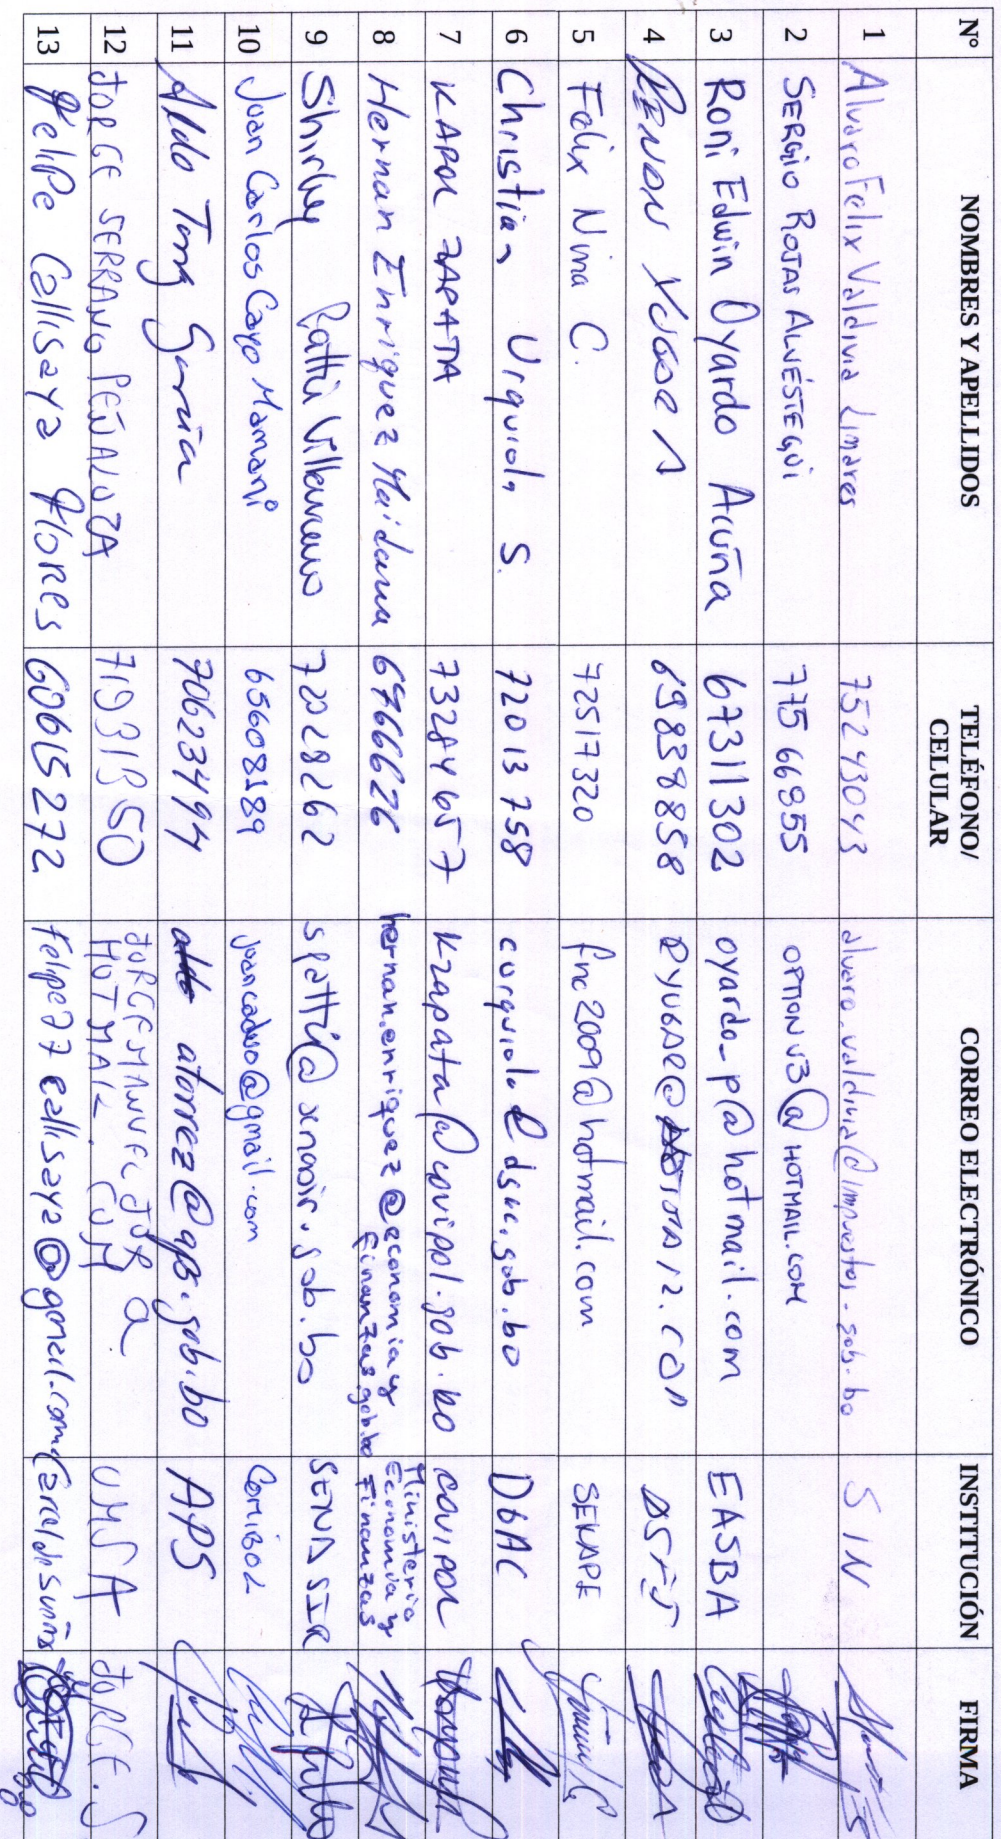 Nº NOMBRES Y APELLIDOS TELÉFONO/ CELULAR CORREO ELECTRÓNICO INSTITUCIÓN FIRMA
1 Alvaro Felix Valdivia Linares 75243043 alvaro.valdivia@impuestos.gob.bo SIN
2 SERGIO ROJAS ALVÉSTEGUI 77566855 OPTIONV3@HOTMAIL.COM
3 Roni Edwin Oyardo Acuña 67311302 oyardo_p@hotmail.com EASBA
4 69838858
5 Felix Nina C. 72517320 fnc2009@hotmail.com SENAPE
6 Christian Urquiola S. 72013758 curquiola@dgac.gob.bo DGAC
7 KAROL ZAPATA 73284657 kzapata@covipol.gob.bo COVIPOL
8 Hernan Enriquez Maidana 67666626 hernan.enriquez@economiay
finanzas.gob.bo Ministerio
Economia y
Finanzas
9 Shirley Patti Villanueva 72028262 spatti@senasir.gob.bo SENASIR
10 Juan Carlos Cayo Mamani 65608189 @gmail.com COMIBOL
11 Aldo Torrez Garcia 70623494 atorrez@aps.gob.bo APS
12 JORGE SERRANO PEÑALOZA 71931350 JORGEMANUELJSP@
HOTMAIL.COM UMSA JORGE.S
13 Felipe Callisaya Flores 60615272 felipe77callisaya@gmail.com